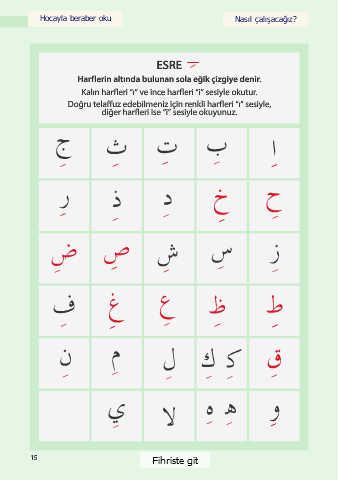 Hocayla beraber oku
Nasıl çalışacağız?
ESRE ـِ
Harflerin altında bulunan sola eğik çizgiye denir.
Kalın harfleri "ı" ve ince harfleri "i" sesiyle okutur.
Doğru telaffuz edebilmeniz için renkli harfleri "ı" sesiyle,
diğer harfleri ise "i" sesiyle okuyunuz.
اِ بِ تِ ثِ جِ
حِ خِ دِ ذِ رِ
زِ سِ شِ صِ ضِ
طِ ظِ عِ غِ فِ
قِ كِـ كِ لِ مِ نِ
وِ هِـ هِ لا يِ
15
Fihriste git